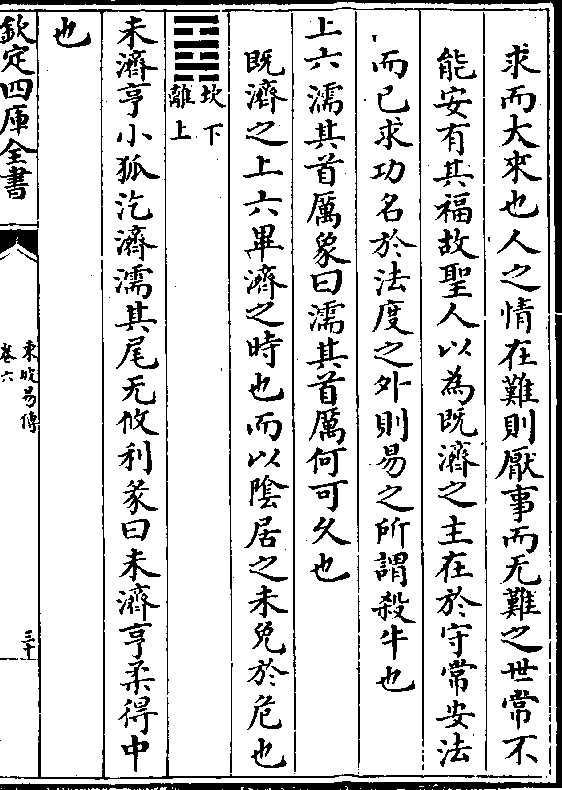 求而大來也人之情在難則厭事而无難之世常不
能安有其福故聖人以為既濟之主在於守常安法
而已求功名於法度之外則易之所謂殺牛也
上六濡其首厲象曰濡其首厲何可久也
既濟之上六畢濟之時也而以陰居之未免於危也
䷿坎下
離上
未濟亨小狐汔濟濡其尾无攸利彖曰未濟亨柔得中
也
欽定四庫全書
東坡易傳
卷六
三十